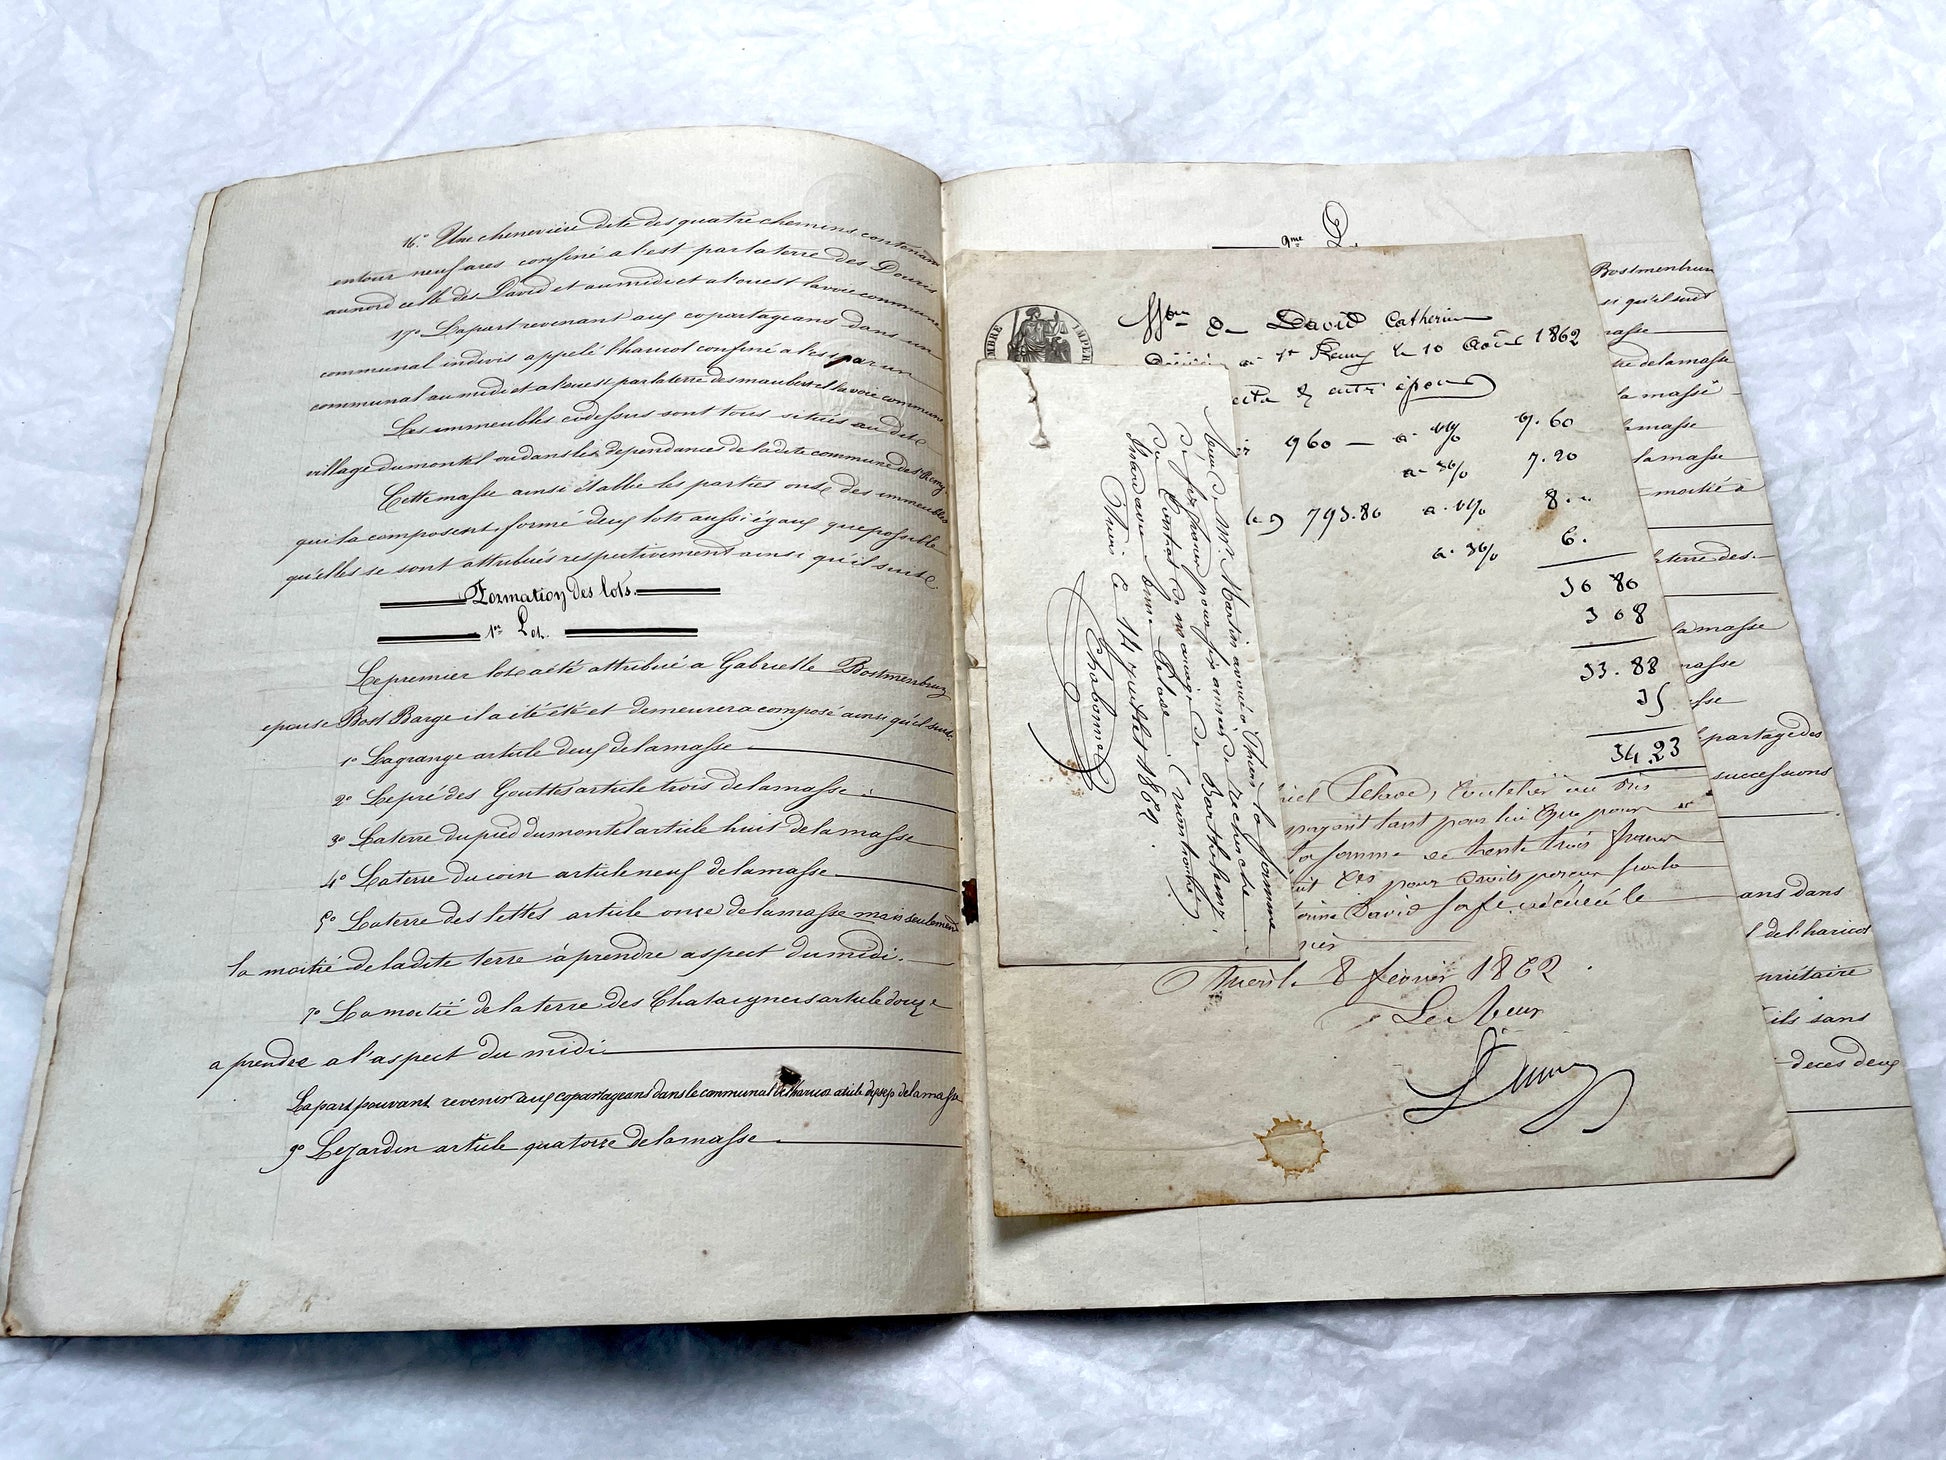 16° Une cheneviere dite des quatre chemins contenant
entour neuf ares confiné a l'est par la terre des Doures
au nord celle des David et au midi et a l'ouest la voie commune
17° La part revenant aux copartageans dans un
communal indivis appelé l'haricot confiné a l'est par un
communal au midi et a l'ouest par la terre des maubert et la voie commune
Les immeubles cidessus sont tous situés au dit
village du montel ou dans les dependances de la dite commune de St Remy
Cette masse ainsi établie les parties ont des immeubles
qui la composent, formé deux lots aussi égaux que possible
qu'elles se sont attribués respectivement ainsi qu'il suit
Formation des lots.
1er Lot.
Le premier lot a été attribué a Gabrielle Bostmenbrun
epouse Bost Barge il a été et demeurera composé ainsi qu'il suit.
1° La grange article deux de la masse
2° Le pré des Gouttes article trois de la masse
3° La terre du pied du montel article huit de la masse
4° La terre du coin article neuf de la masse
5° La terre des lettes article onze de la masse mais seulement
la moitié de la dite terre à prendre aspect du midi.
7° La moitié de la terre des Chataigners article douze
a prendre a l'aspect du midi
La part pouvant revenir aux copartageans dans le communal de l'haricot article dixsept de la masse
9° Le jardin article quatorze de la masse
2me L
Bostmenbrun
si qu'il suit
masse
de la masse
la masse
la masse
la masse
moitié à
la terre des
la masse
masse
sse
partage des
successions
ans dans
l de l'haricot
priétaire
fils sans
deces deux
TIMBRE IMPER
Son de David Catherine
décédée a St Remy le 10 Août 1862
960 — a 1% 9.60
a 3% 7.20
793.80 a 1% 8. "
a 3% 6.
30 80
3 08
33.88
35
34.23
riel Delaire, Coutelier au dit
payant tant pour lui que pour
la somme de trente trois francs
huit Ces pour droits percus sur la
David
Thiers le 8 février 1862
Le Receveur
Reçu de Mr Martin avoué a Thiers la somme
de six francs pour six années de recherche
du Contrat de mariage de Barthelemy
Anne Delaire
Thiers le 14 juillet 1862.
Chabonnet